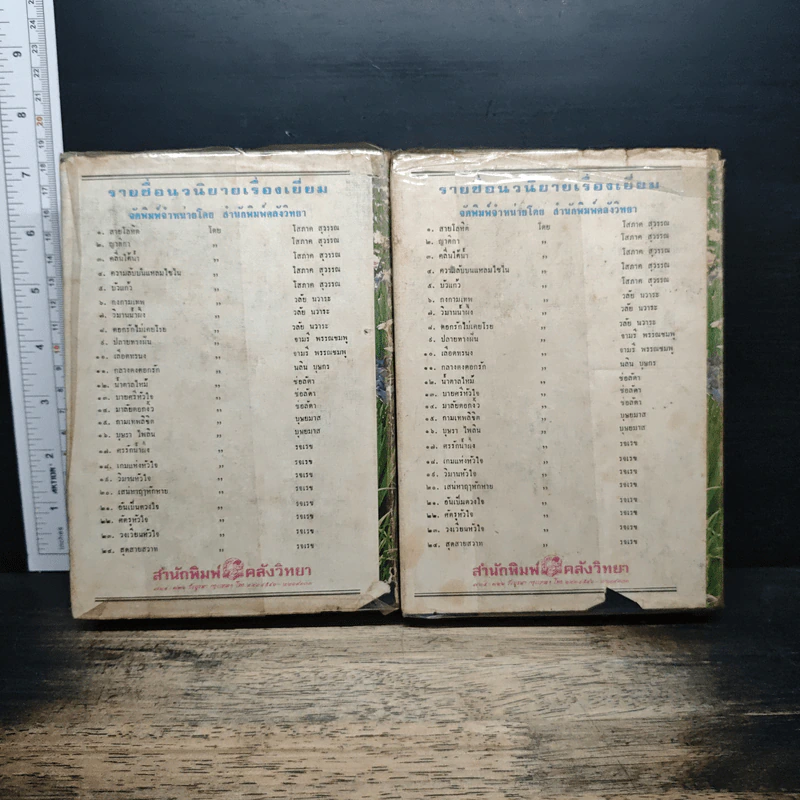 รายชื่อนวนิยายเรื่องเยี่ยม
จัดพิมพ์จำหน่ายโดย สำนักพิมพ์คลังวิทยา
๑. สายโลหิต โดย โสภาค สุวรรณ
๒. ญาติกา " โสภาค สุวรรณ
๓. คลื่นใต้น้ำ " โสภาค สุวรรณ
๔. ความลับบนแหลมไซไน " โสภาค สุวรรณ
๕. บัวแก้ว " โสภาค สุวรรณ
๖. กงกามเทพ " วลัย นวาระ
๗. วิมานน้ำผึ้ง " วลัย นวาระ
๘. ดอกรักไม่เคยโรย " วลัย นวาระ
๙. ปลายทางฝัน " จามรี พรรณชมพู
๑๐. เลือดทรนง " จามรี พรรณชมพู
๑๑. กลางดงดอกรัก " นลิน บุษกร
๑๒. น้ำตาลไหม้ " ช่อลัดา
๑๓. นายศรีหัวใจ " ช่อลัดา
๑๔. มาลัยดอกงิ้ว " ช่อลัดา
๑๕. กามเทพลิขิต " บุษยมาส
๑๖. บุษรา ไพลิน " บุษยมาส
๑๗. ศรรักน้ำผึ้ง " รจเรข
๑๘. เกมแห่งหัวใจ " รจเรข
๑๙. วิมานหัวใจ " รจเรข
๒๐. เสน่หาฤาหักหาย " รจเรข
๒๑. อันเป็นดวงใจ " รจเรข
๒๒. ศัตรูหัวใจ " รจเรข
๒๓. วงเวียนหัวใจ " รจเรข
๒๔. สุดสายสวาท " รจเรข
สำนักพิมพ์ คลังวิทยา
รายชื่อนวนิยายเรื่องเยี่ยม
จัดพิมพ์จำหน่ายโดย สำนักพิมพ์คลังวิทยา
๑. สายโลหิต โดย โสภาค สุวรรณ
๒. ญาติกา " โสภาค สุวรรณ
๓. คลื่นใต้น้ำ " โสภาค สุวรรณ
๔. ความลับบนแหลมไซไน " โสภาค สุวรรณ
๕. บัวแก้ว " โสภาค สุวรรณ
๖. กงกามเทพ " วลัย นวาระ
๗. วิมานน้ำผึ้ง " วลัย นวาระ
๘. ดอกรักไม่เคยโรย " วลัย นวาระ
๙. ปลายทางฝัน " จามรี พรรณชมพู
๑๐. เลือดทรนง " จามรี พรรณชมพู
๑๑. กลางดงดอกรัก " นลิน บุษกร
๑๒. น้ำตาลไหม้ " ช่อลัดา
๑๓. นายศรีหัวใจ " ช่อลัดา
๑๔. มาลัยดอกงิ้ว " ช่อลัดา
๑๕. กามเทพลิขิต " บุษยมาส
๑๖. บุษรา ไพลิน " บุษยมาส
๑๗. ศรรักน้ำผึ้ง " รจเรข
๑๘. เกมแห่งหัวใจ " รจเรข
๑๙. วิมานหัวใจ " รจเรข
๒๐. เสน่หาฤาหักหาย " รจเรข
๒๑. อันเป็นดวงใจ " รจเรข
๒๒. ศัตรูหัวใจ " รจเรข
๒๓. วงเวียนหัวใจ " รจเรข
๒๔. สุดสายสวาท " รจเรข
สำนักพิมพ์ คลังวิทยา